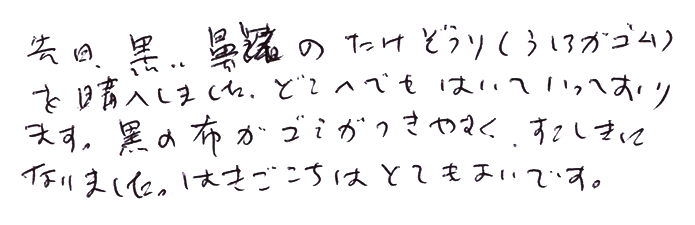 今回、黒い鼻緒のたけぞうり(うしろがゴム)
を購入しました。どこへでもはいていっており
ます。黒の布がゴミがつきやすく、すこしきに
なりました。はきごこちはとてもよいです。